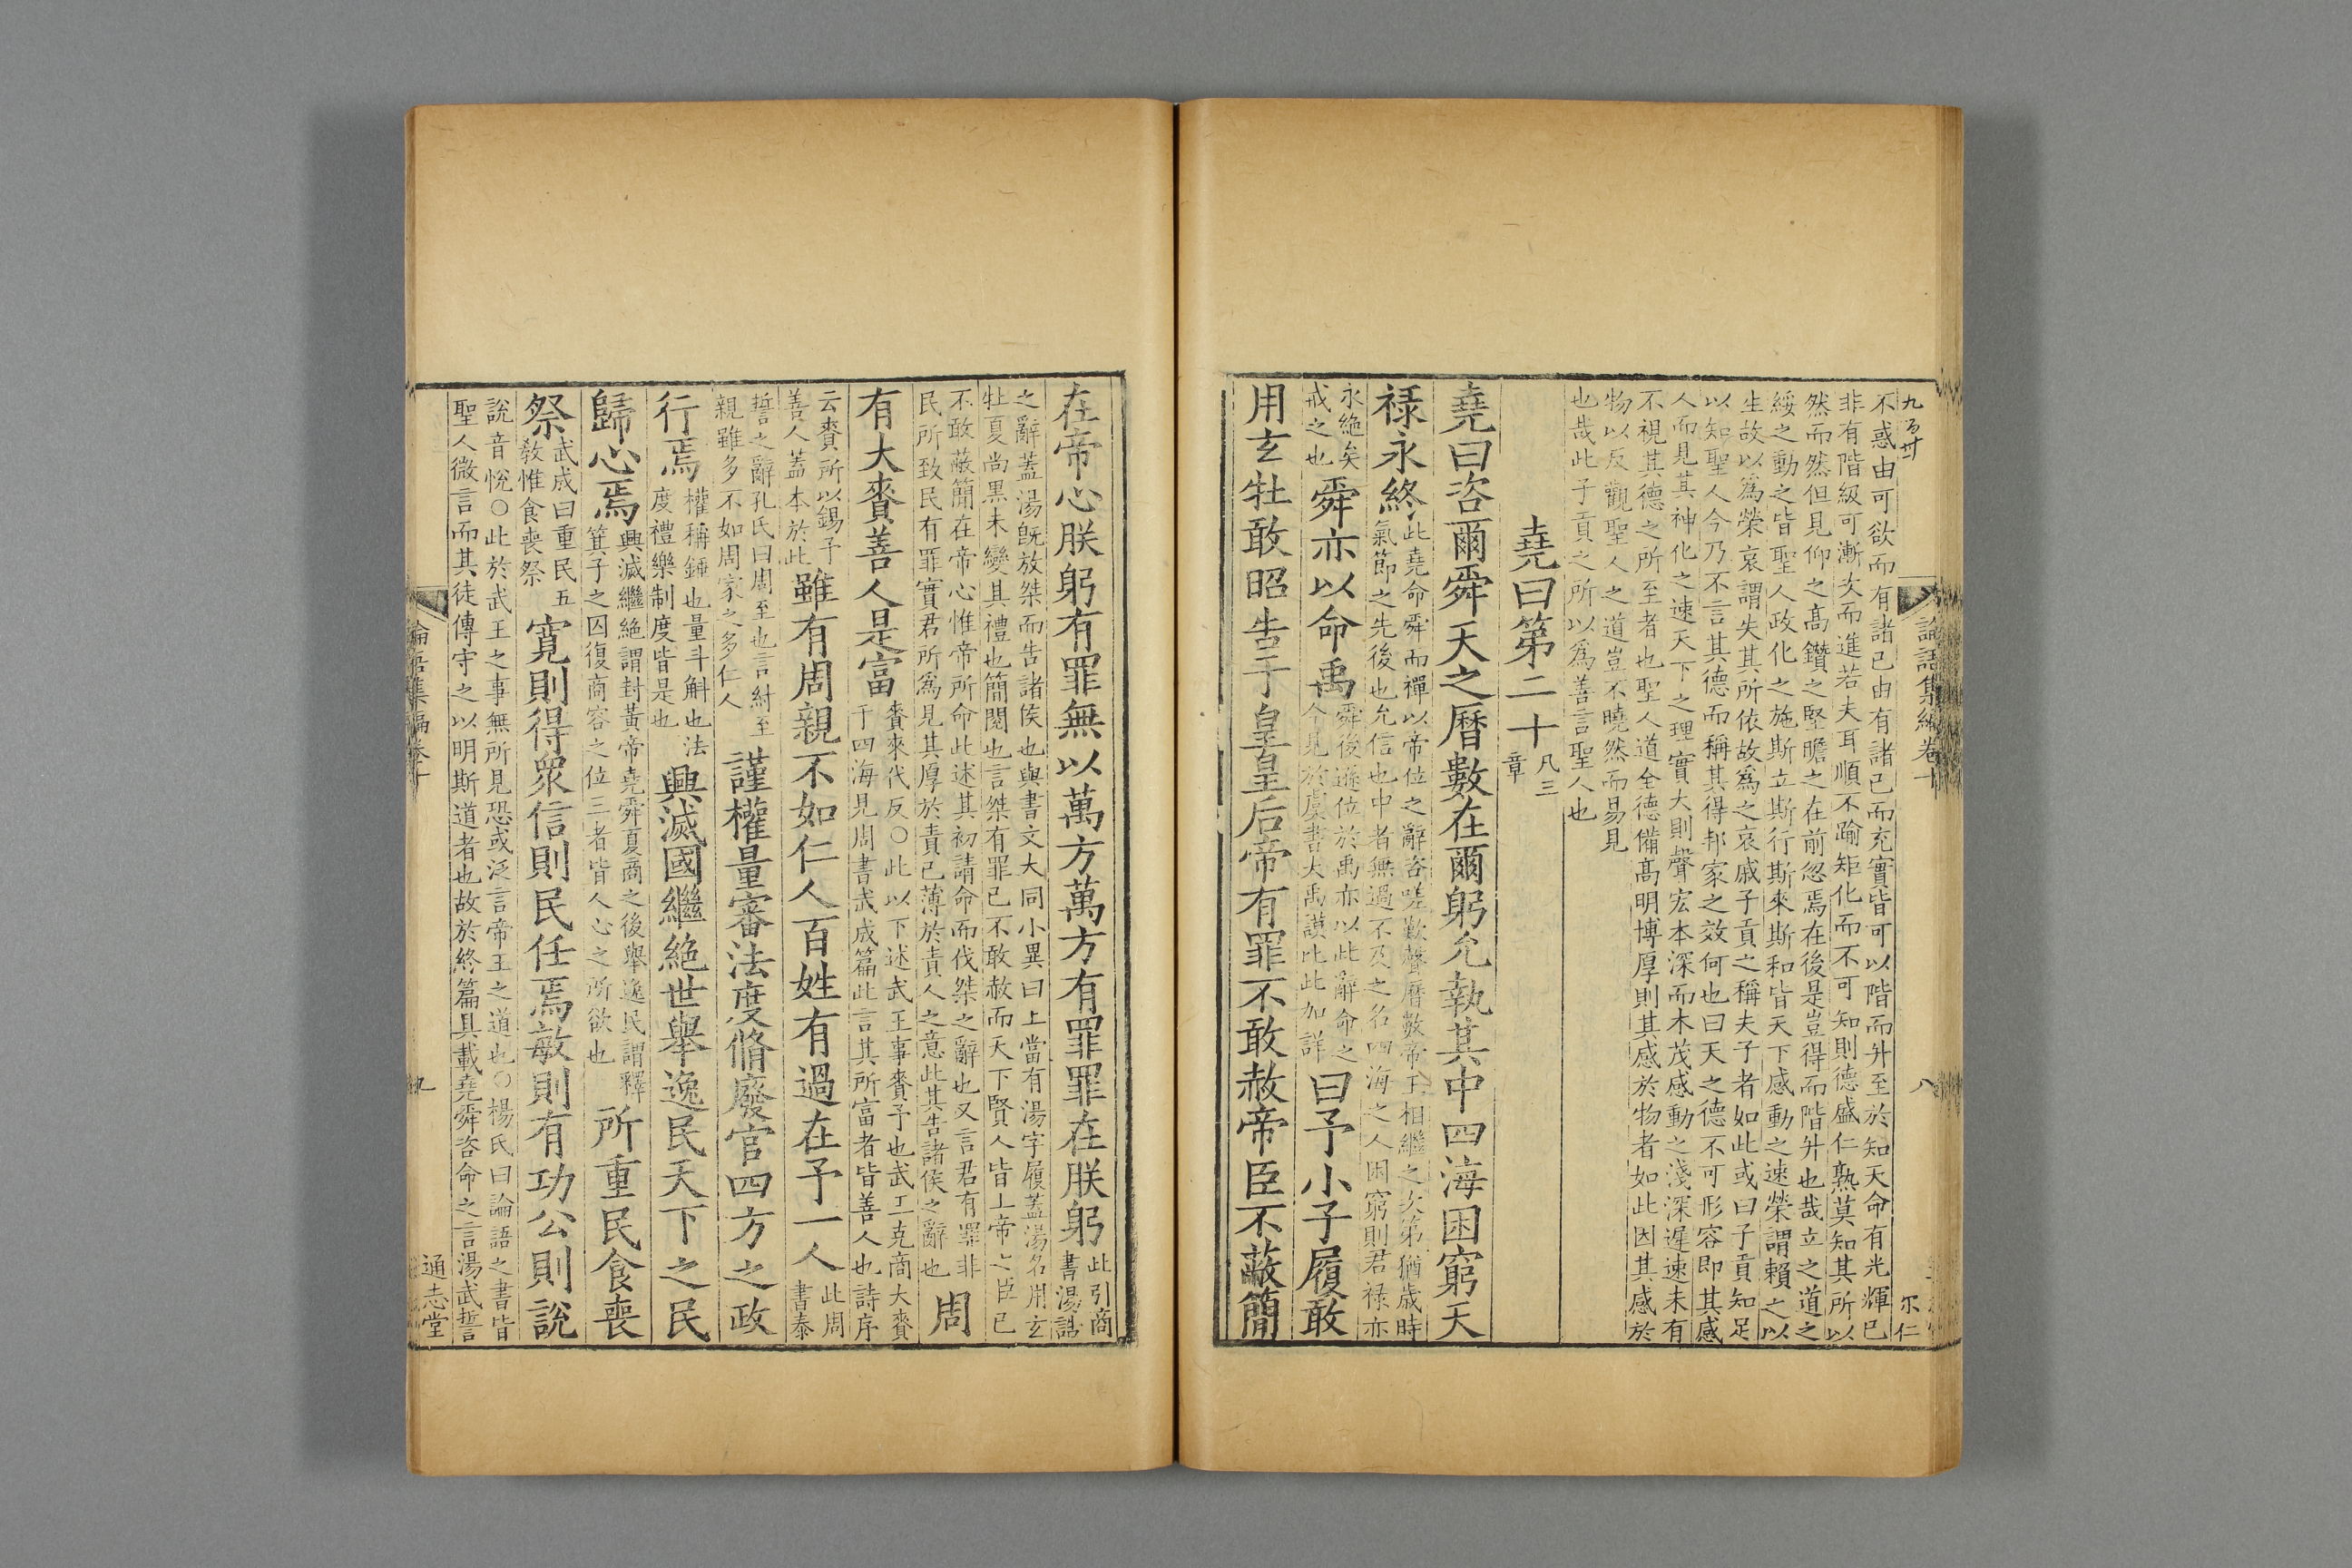 論語集編卷十
八
尔仁
不惑由可欲而有諸己由有諸己而充實皆可以階而升至於知天命有光輝已
非有階級可漸次而進若夫耳順不踰矩化而不可知則德盛仁熟莫知其所以
然而然但見仰之高鑽之堅瞻之在前忽焉在後是豈得而階升也哉立之道之
綏之動之皆聖人政化之施斯立斯行斯來斯和皆天下感動之速榮謂賴之以
生故以為榮哀謂失其所依故為之哀戚子貢之稱夫子者如此或曰子貢知足
以知聖人今乃不言其德而稱其得邦家之效何也曰天之德不可形容即其感
人而見其神化之速天下之理實大則聲宏本深而木茂感動之淺深遲速未有
不視其德之所至者也聖人道全德備高明博厚則其感於物者如此因其感於
物以反觀聖人之道豈不曉然而易見
也哉此子貢之所以為善言聖人也
堯曰第二十凡三章
堯曰咨爾舜天之曆數在爾躬允執其中四海困窮天
祿永終此堯命舜而禪以帝位之辭咨嗟歎聲曆數帝王相繼之次第猶歲時氣節之先後也允信也中者無過不及之名四海之人困窮則君祿亦
永絕矣戒之也舜亦以命禹舜後遜位於禹亦以此辭命之今見於虞書大禹謨比此加詳曰予小子履敢
用玄牡敢昭告于皇皇后帝有罪不敢赦帝臣不蔽簡
在帝心朕躬有罪無以萬方萬方有罪罪在朕躬此引商書湯誥
之辭蓋湯既放桀而告諸侯也與書文大同小異曰上當有湯字履蓋湯名用玄
牡夏尚黑未變其禮也簡閱也言桀有罪已不敢赦而天下賢人皆上帝之臣已
不敢蔽簡在帝心惟帝所命此述其初請命而伐桀之辭也又言君有罪非
民所致民有罪實君所為見其厚於責己薄於責人之意此其告諸侯之辭也周
有大賚善人是富賚來代反○此以下述武王事賚予也武王克商大賚于四海見周書武成篇此言其所富者皆善人也詩序
云賚所以錫予善人蓋本於此雖有周親不如仁人百姓有過在予一人此周書泰
誓之辭孔氏曰周至也言紂至親雖多不如周家之多仁人謹權量審法度脩廢官四方之政
行焉權稱錘也量斗斛也法度禮樂制度皆是也興滅國繼絕世舉逸民天下之民
歸心焉興滅繼絕謂封黃帝堯舜夏商之後舉逸民謂釋箕子之囚復商容之位三者皆人心之所欲也所重民食喪
祭武成曰重民五教惟食喪祭寬則得眾信則民任焉敏則有功公則說
說音悅○此於武王之事無所見恐或泛言帝王之道也○楊氏曰論語之書皆
聖人微言而其徒傳守之以明斯道者也故於終篇具載堯舜咨命之言湯武誓
論語集編卷十
九
通志堂